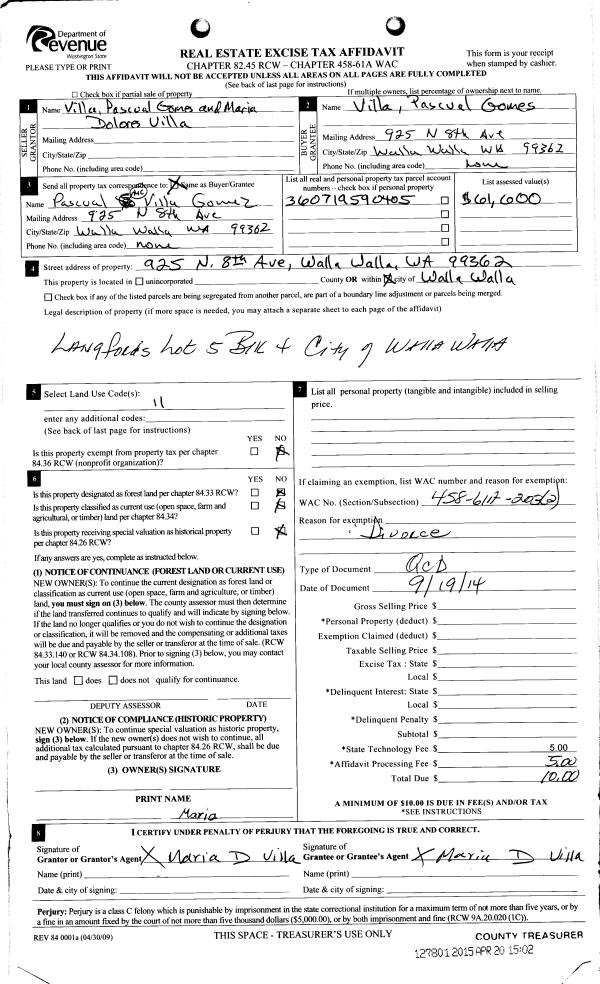 Department of
Revenue
Washington State
PLEASE TYPE OR PRINT
REAL ESTATE EXCISE TAX AFFIDAVIT
CHAPTER 82.45 RCW – CHAPTER 458-61A WAC
This form is your receipt
when stamped by cashier.
THIS AFFIDAVIT WILL NOT BE ACCEPTED UNLESS ALL AREAS ON ALL PAGES ARE FULLY COMPLETED
(See back of last page for instructions)
Check box if partial sale of property
If multiple owners, list percentage of ownership next to name.
1 Name Villa, Pascual Gomes and Maria
Dolores Villa
SELLER GRANTOR
Mailing Address
City/State/Zip
Phone No. (including area code)
2 Name Villa, Pascual Gomes
BUYER GRANTEE
Mailing Address 925 N 8th Ave
City/State/Zip Walla Walla WA 99362
Phone No. (including area code) none
3 Send all property tax correspondence to: Same as Buyer/Grantee
Name Pascual Villa Gomez
Mailing Address 925 N 8th Ave
City/State/Zip Walla Walla WA 99362
Phone No. (including area code) none
List all real and personal property tax parcel account
numbers – check box if personal property
360719590405
List assessed value(s)
$61,000
4 Street address of property: 925 N. 8th Ave, Walla Walla, WA 99362
This property is located in unincorporated County OR within city of Walla Walla
Check box if any of the listed parcels are being segregated from another parcel, are part of a boundary line adjustment or parcels being merged.
Legal description of property (if more space is needed, you may attach a separate sheet to each page of the affidavit)
Langfords Lot 5 Blk 4 City of Walla Walla
5 Select Land Use Code(s):
11
enter any additional codes:
(See back of last page for instructions)
YES NO
Is this property exempt from property tax per chapter
84.36 RCW (nonprofit organization)?
6 YES NO
Is this property designated as forest land per chapter 84.33 RCW?
Is this property classified as current use (open space, farm and
agricultural, or timber) land per chapter 84.34?
Is this property receiving special valuation as historical property
per chapter 84.26 RCW?
If any answers are yes, complete as instructed below.
(1) NOTICE OF CONTINUANCE (FOREST LAND OR CURRENT USE)
NEW OWNER(S): To continue the current designation as forest land or
classification as current use (open space, farm and agriculture, or timber)
land, you must sign on (3) below. The county assessor must then determine
if the land transferred continues to qualify and will indicate by signing below.
If the land no longer qualifies or you do not wish to continue the designation
or classification, it will be removed and the compensating or additional taxes
will be due and payable by the seller or transferor at the time of sale. (RCW
84.33.140 or RCW 84.34.108). Prior to signing (3) below, you may contact
your local county assessor for more information.
This land does does not qualify for continuance.
DEPUTY ASSESSOR DATE
(2) NOTICE OF COMPLIANCE (HISTORIC PROPERTY)
NEW OWNER(S): To continue special valuation as historic property,
sign (3) below. If the new owner(s) does not wish to continue, all
additional tax calculated pursuant to chapter 84.26 RCW, shall be due
and payable by the seller or transferor at the time of sale.
(3) OWNER(S) SIGNATURE
PRINT NAME
Maria
7 List all personal property (tangible and intangible) included in selling
price.
If claiming an exemption, list WAC number and reason for exemption:
WAC No. (Section/Subsection) 458-61A-203(2)
Reason for exemption
Divorce
Type of Document QCD
Date of Document 9/19/14
Gross Selling Price $
*Personal Property (deduct) $
Exemption Claimed (deduct) $
Taxable Selling Price $
Excise Tax : State $
Local $
*Delinquent Interest: State $
Local $
*Delinquent Penalty $
Subtotal $
*State Technology Fee $ 5.00
*Affidavit Processing Fee $ 5.00
Total Due $ 10.00
A MINIMUM OF $10.00 IS DUE IN FEE(S) AND/OR TAX
*SEE INSTRUCTIONS
8 I CERTIFY UNDER PENALTY OF PERJURY THAT THE FOREGOING IS TRUE AND CORRECT.
Signature of
Grantor or Grantor's Agent X Maria D Villa
Name (print)
Date & city of signing:
Signature of
Grantee or Grantee's Agent X Maria D Villa
Name (print)
Date & city of signing:
Perjury: Perjury is a class C felony which is punishable by imprisonment in the state correctional institution for a maximum term of not more than five years, or by
a fine in an amount fixed by the court of not more than five thousand dollars ($5,000.00), or by both imprisonment and fine (RCW 9A.20.020 (1C)).
REV 84 0001a (04/30/09)
THIS SPACE - TREASURER'S USE ONLY
COUNTY TREASURER
127801 2015 APR 20 15:02